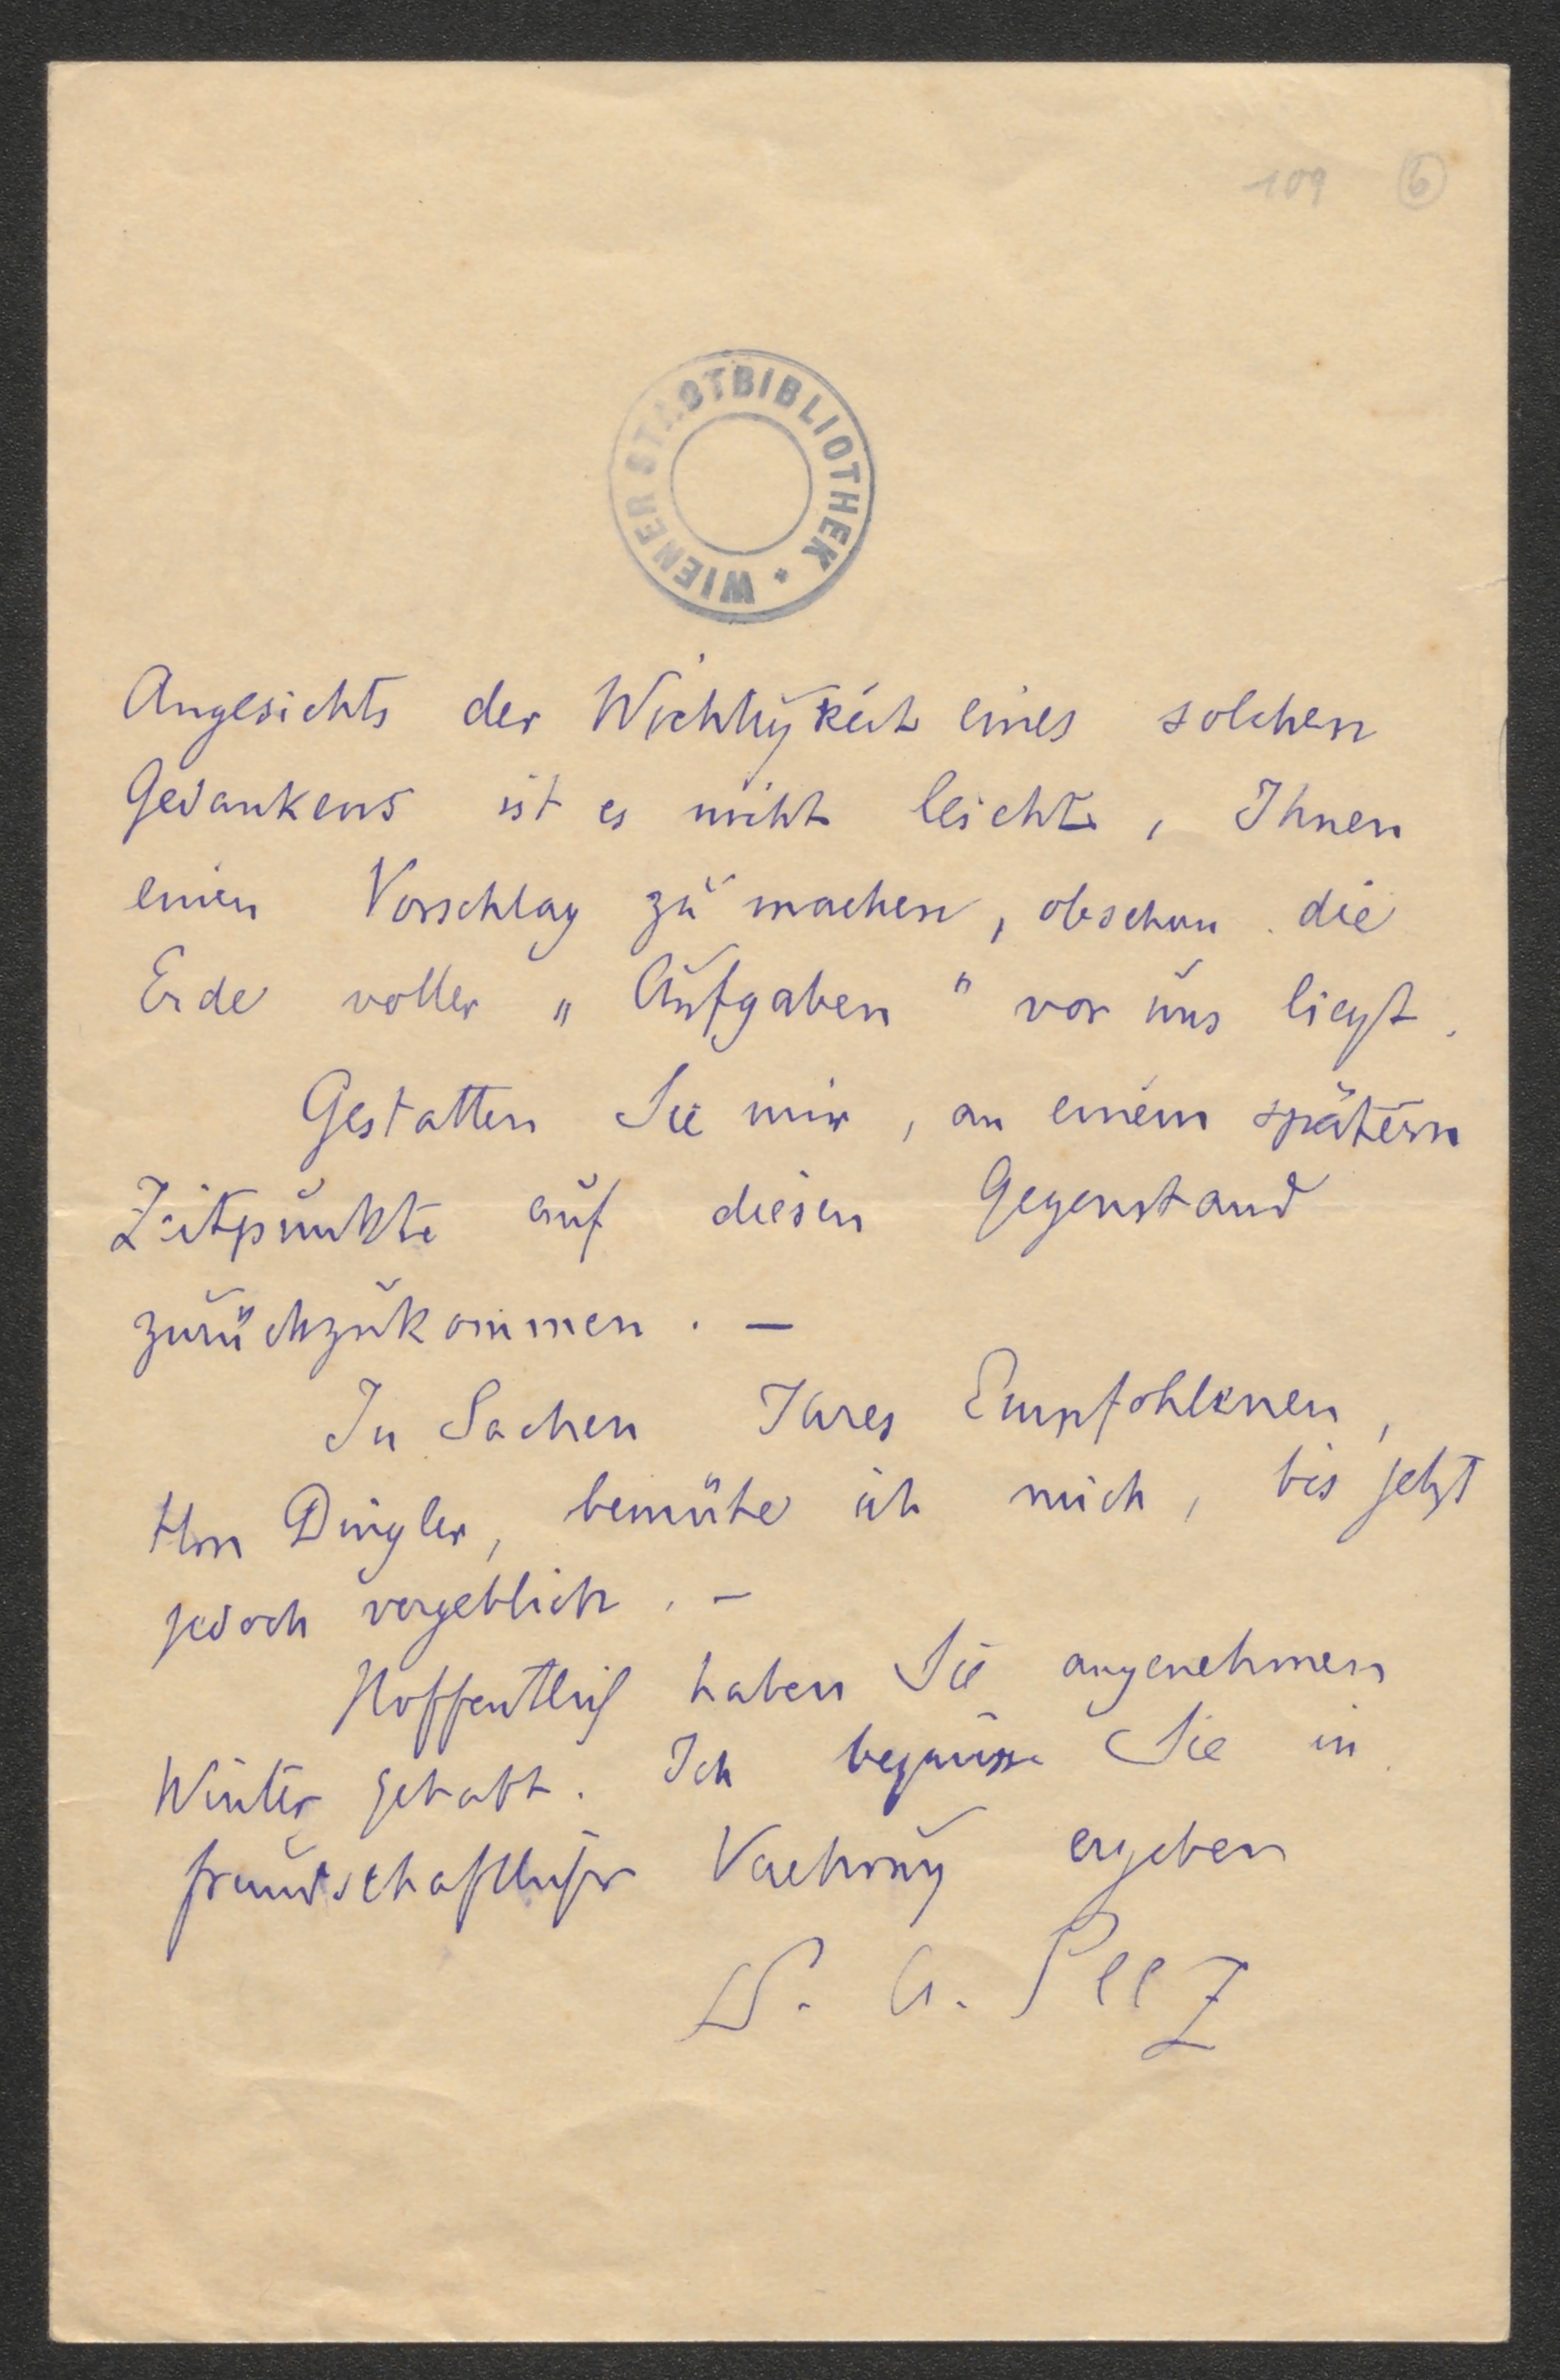 109 6
WIENER STADTBIBLIOTHEK *
Angesichts der Wichtigkeit eines solchen
Gedankens ist es nicht leicht, Ihnen
einen Vorschlag zu machen, obschon die
Erde voller „Aufgaben" vor uns liegt.
Gestatten Sie mir, an einem spätern
Zeitpunkte auf diesen Gegenstand
zurückzukommen. —
In Sachen Ihres Empfohlenen,
Hrn Dingler, bemühe ich mich, bis jetzt
jedoch vergeblich. –
Hoffentlich haben Sie angenehmen
Winter gehabt. Ich begrüsse Sie in
freundschaftlicher Verehrung ergeben
Dr. A. Peez